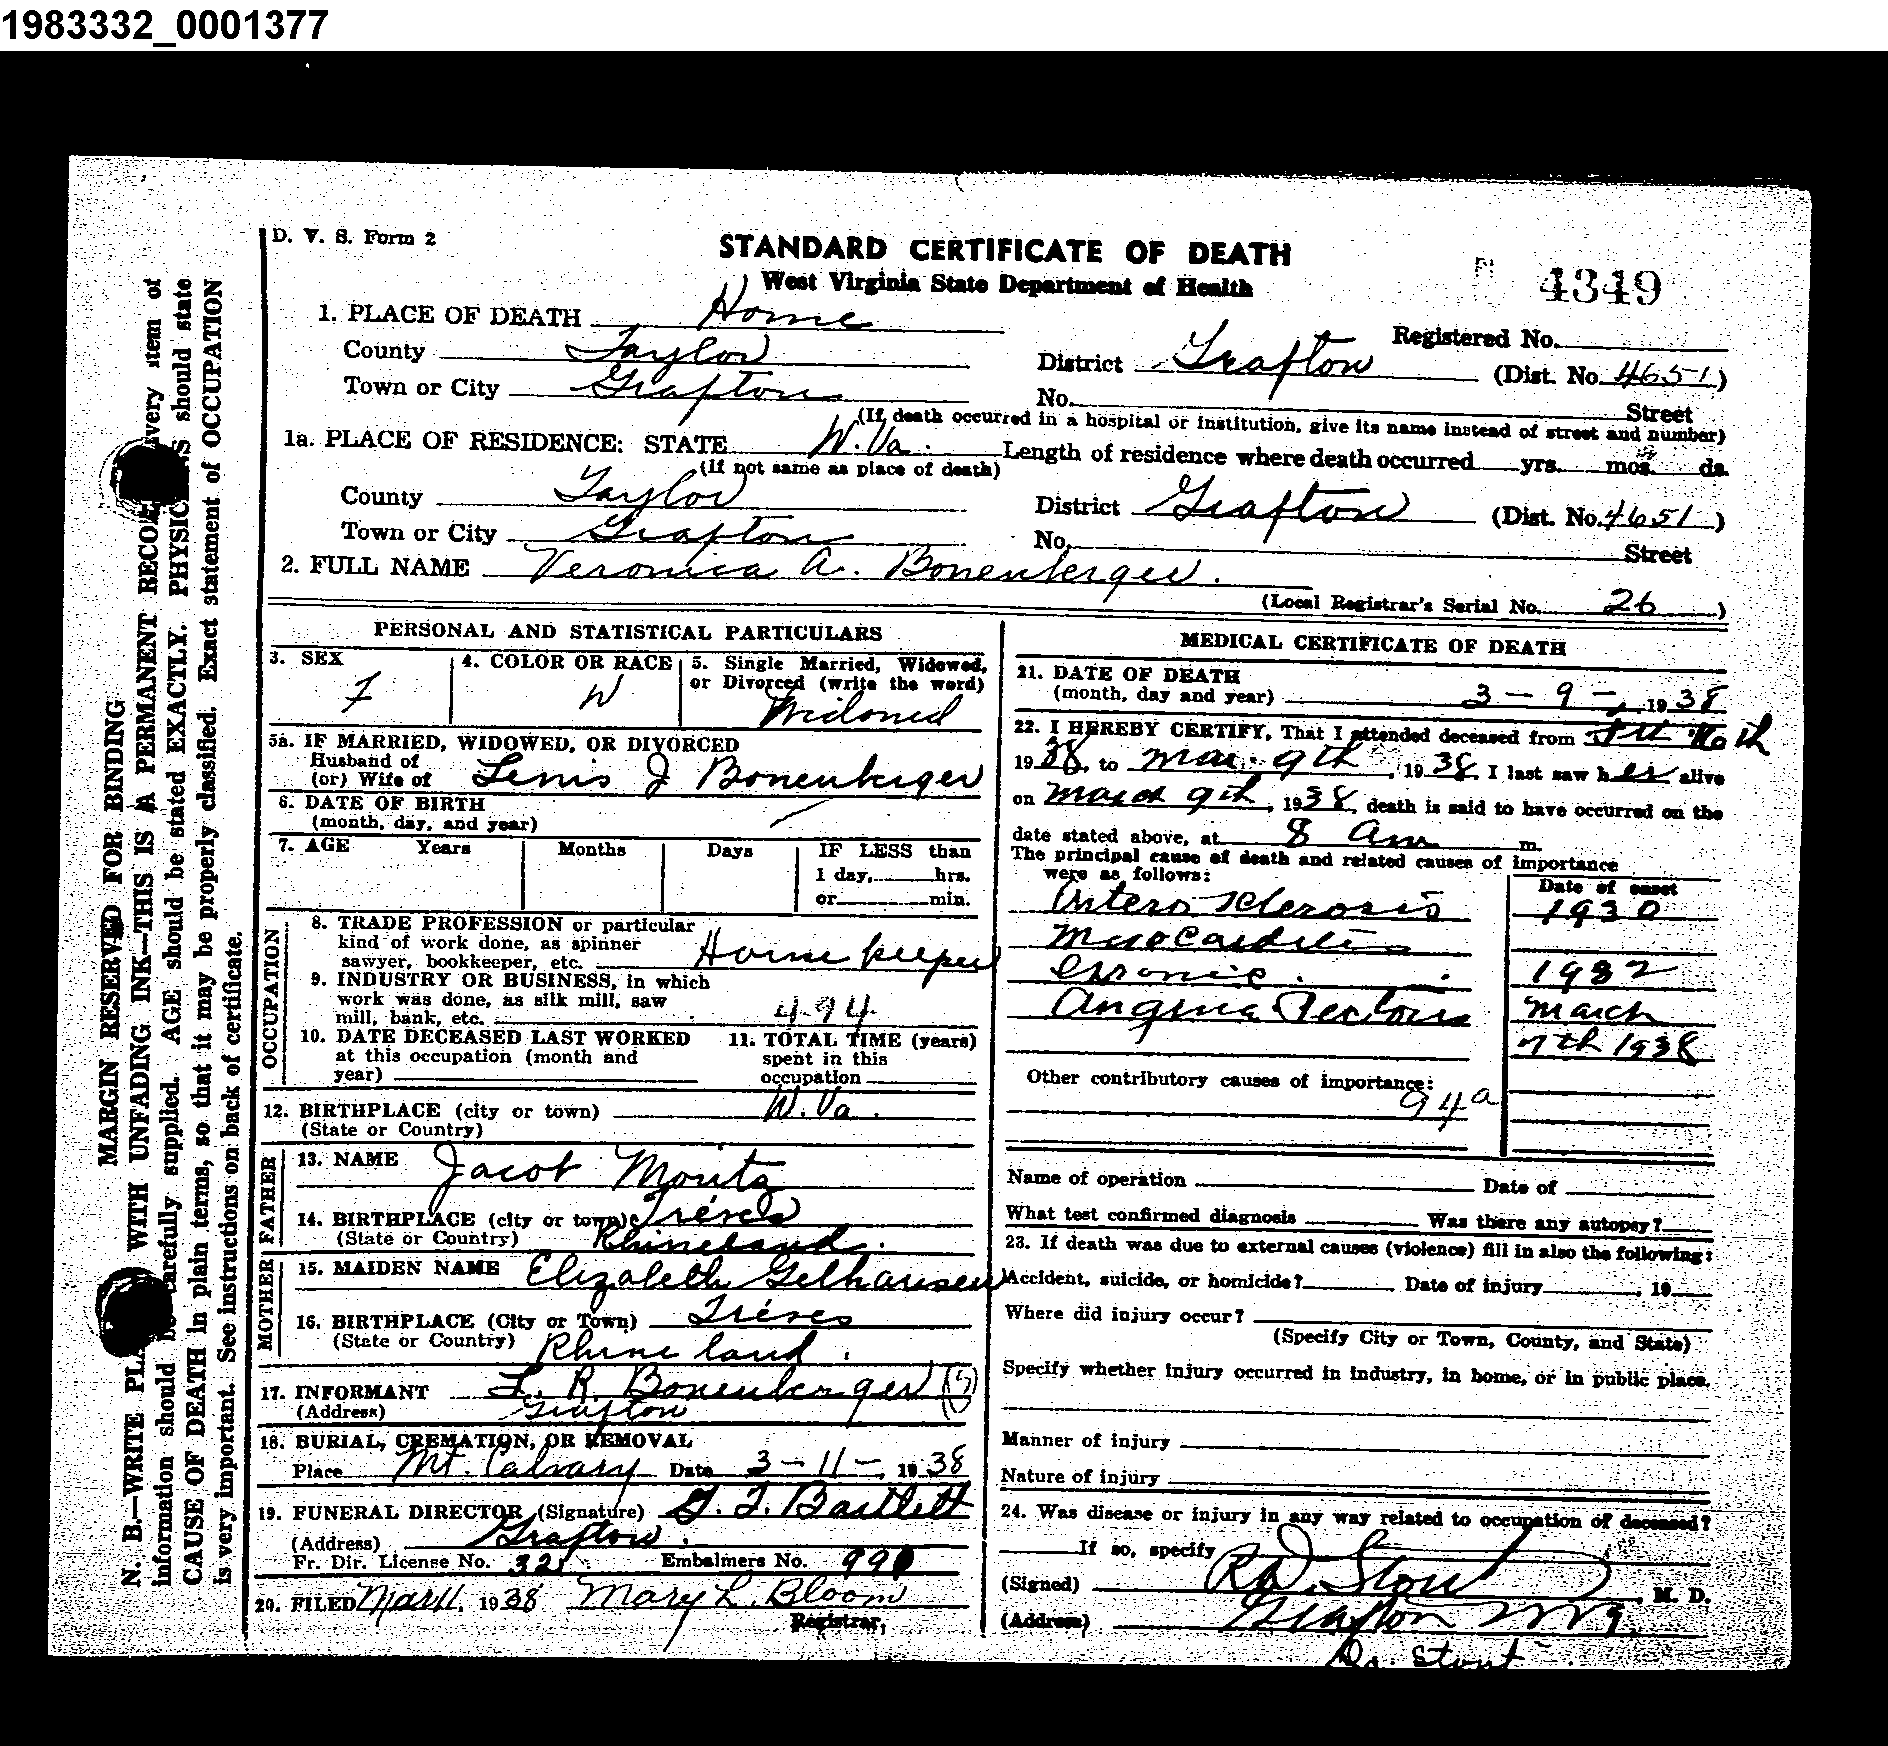 1983332_0001377
D. V. S. Form 2
STANDARD CERTIFICATE OF DEATH
West Virginia State Department of Health
4349
1. PLACE OF DEATH Home
Registered No.
County Taylor
District Grafton (Dist. No. 4651)
Town or City Grafton
No. Street
(If death occurred in a hospital or institution, give its name instead of street and number)
1a. PLACE OF RESIDENCE: STATE W. Va.
(If not same as place of death)
Length of residence where death occurred yrs. mos. ds.
County Taylor
District Grafton (Dist. No. 4651)
Town or City Grafton
No. Street
2. FULL NAME Veronica A. Bonenberger.
(Local Registrar's Serial No. 26)
PERSONAL AND STATISTICAL PARTICULARS
3. SEX
F
4. COLOR OR RACE
W
5. Single Married, Widowed,
or Divorced (write the word)
Widowed
5a. IF MARRIED, WIDOWED, OR DIVORCED
Husband of
(or) Wife of Lewis J Bonenberger
6. DATE OF BIRTH
(month, day, and year)
7. AGE Years Months Days IF LESS than
1 day, hrs.
or min.
OCCUPATION
8. TRADE PROFESSION or particular
kind of work done, as spinner
sawyer, bookkeeper, etc. House keeper
9. INDUSTRY OR BUSINESS, in which
work was done, as silk mill, saw
mill, bank, etc. 494
10. DATE DECEASED LAST WORKED
at this occupation (month and
year)
11. TOTAL TIME (years)
spent in this
occupation
12. BIRTHPLACE (city or town) W. Va.
(State or Country)
FATHER
13. NAME Jacob Moritz
14. BIRTHPLACE (city or town) Tréves
(State or Country) Rhineland.
MOTHER
15. MAIDEN NAME Elizabeth Gelhausen
16. BIRTHPLACE (City or Town) Tréves
(State or Country) Rhine land.
17. INFORMANT L. R. Bonenberger (S)
(Address) Grafton
18. BURIAL, CREMATION, OR REMOVAL
Place Mt. Calvary Date 3-11-, 1938
19. FUNERAL DIRECTOR (Signature) G. F. Bartlett
(Address) Grafton.
Fr. Dir. License No. 321 Embalmers No. 990
20. FILED Mar 11, 1938 Mary L. Bloom
Registrar.
MEDICAL CERTIFICATE OF DEATH
21. DATE OF DEATH
(month, day and year) 3-9-, 1938
22. I HEREBY CERTIFY, That I attended deceased from
1938, to Mar. 9th, 1938. I last saw her alive
on March 9th, 1938 death is said to have occurred on the
date stated above, at 8 am m.
The principal cause of death and related causes of importance
were as follows:
Date of onset
Arterio sclerosis 1930
Myocarditis
Chronic. 1932
Angina Pectoris March
7th 1938
Other contributory causes of importance:
94a
Name of operation Date of
What test confirmed diagnosis Was there any autopsy?
23. If death was due to external causes (violence) fill in also the following:
Accident, suicide, or homicide? Date of injury , 19
Where did injury occur?
(Specify City or Town, County, and State)
Specify whether injury occurred in industry, in home, or in public place.
Manner of injury
Nature of injury
24. Was disease or injury in any way related to occupation of deceased?
If so, specify
(Signed) R. D. Stout, M. D.
(Address) Grafton W Va.
Dr. Stout
MARGIN RESERVED FOR BINDING
N. B.—WRITE WITH UNFADING INK—THIS IS A PERMANENT every item of
information should be carefully supplied. AGE should be stated EXACTLY. should state
CAUSE OF DEATH in plain terms, so that it may be properly classified. Exact statement of OCCUPATION
is very important. See instructions on back of certificate.